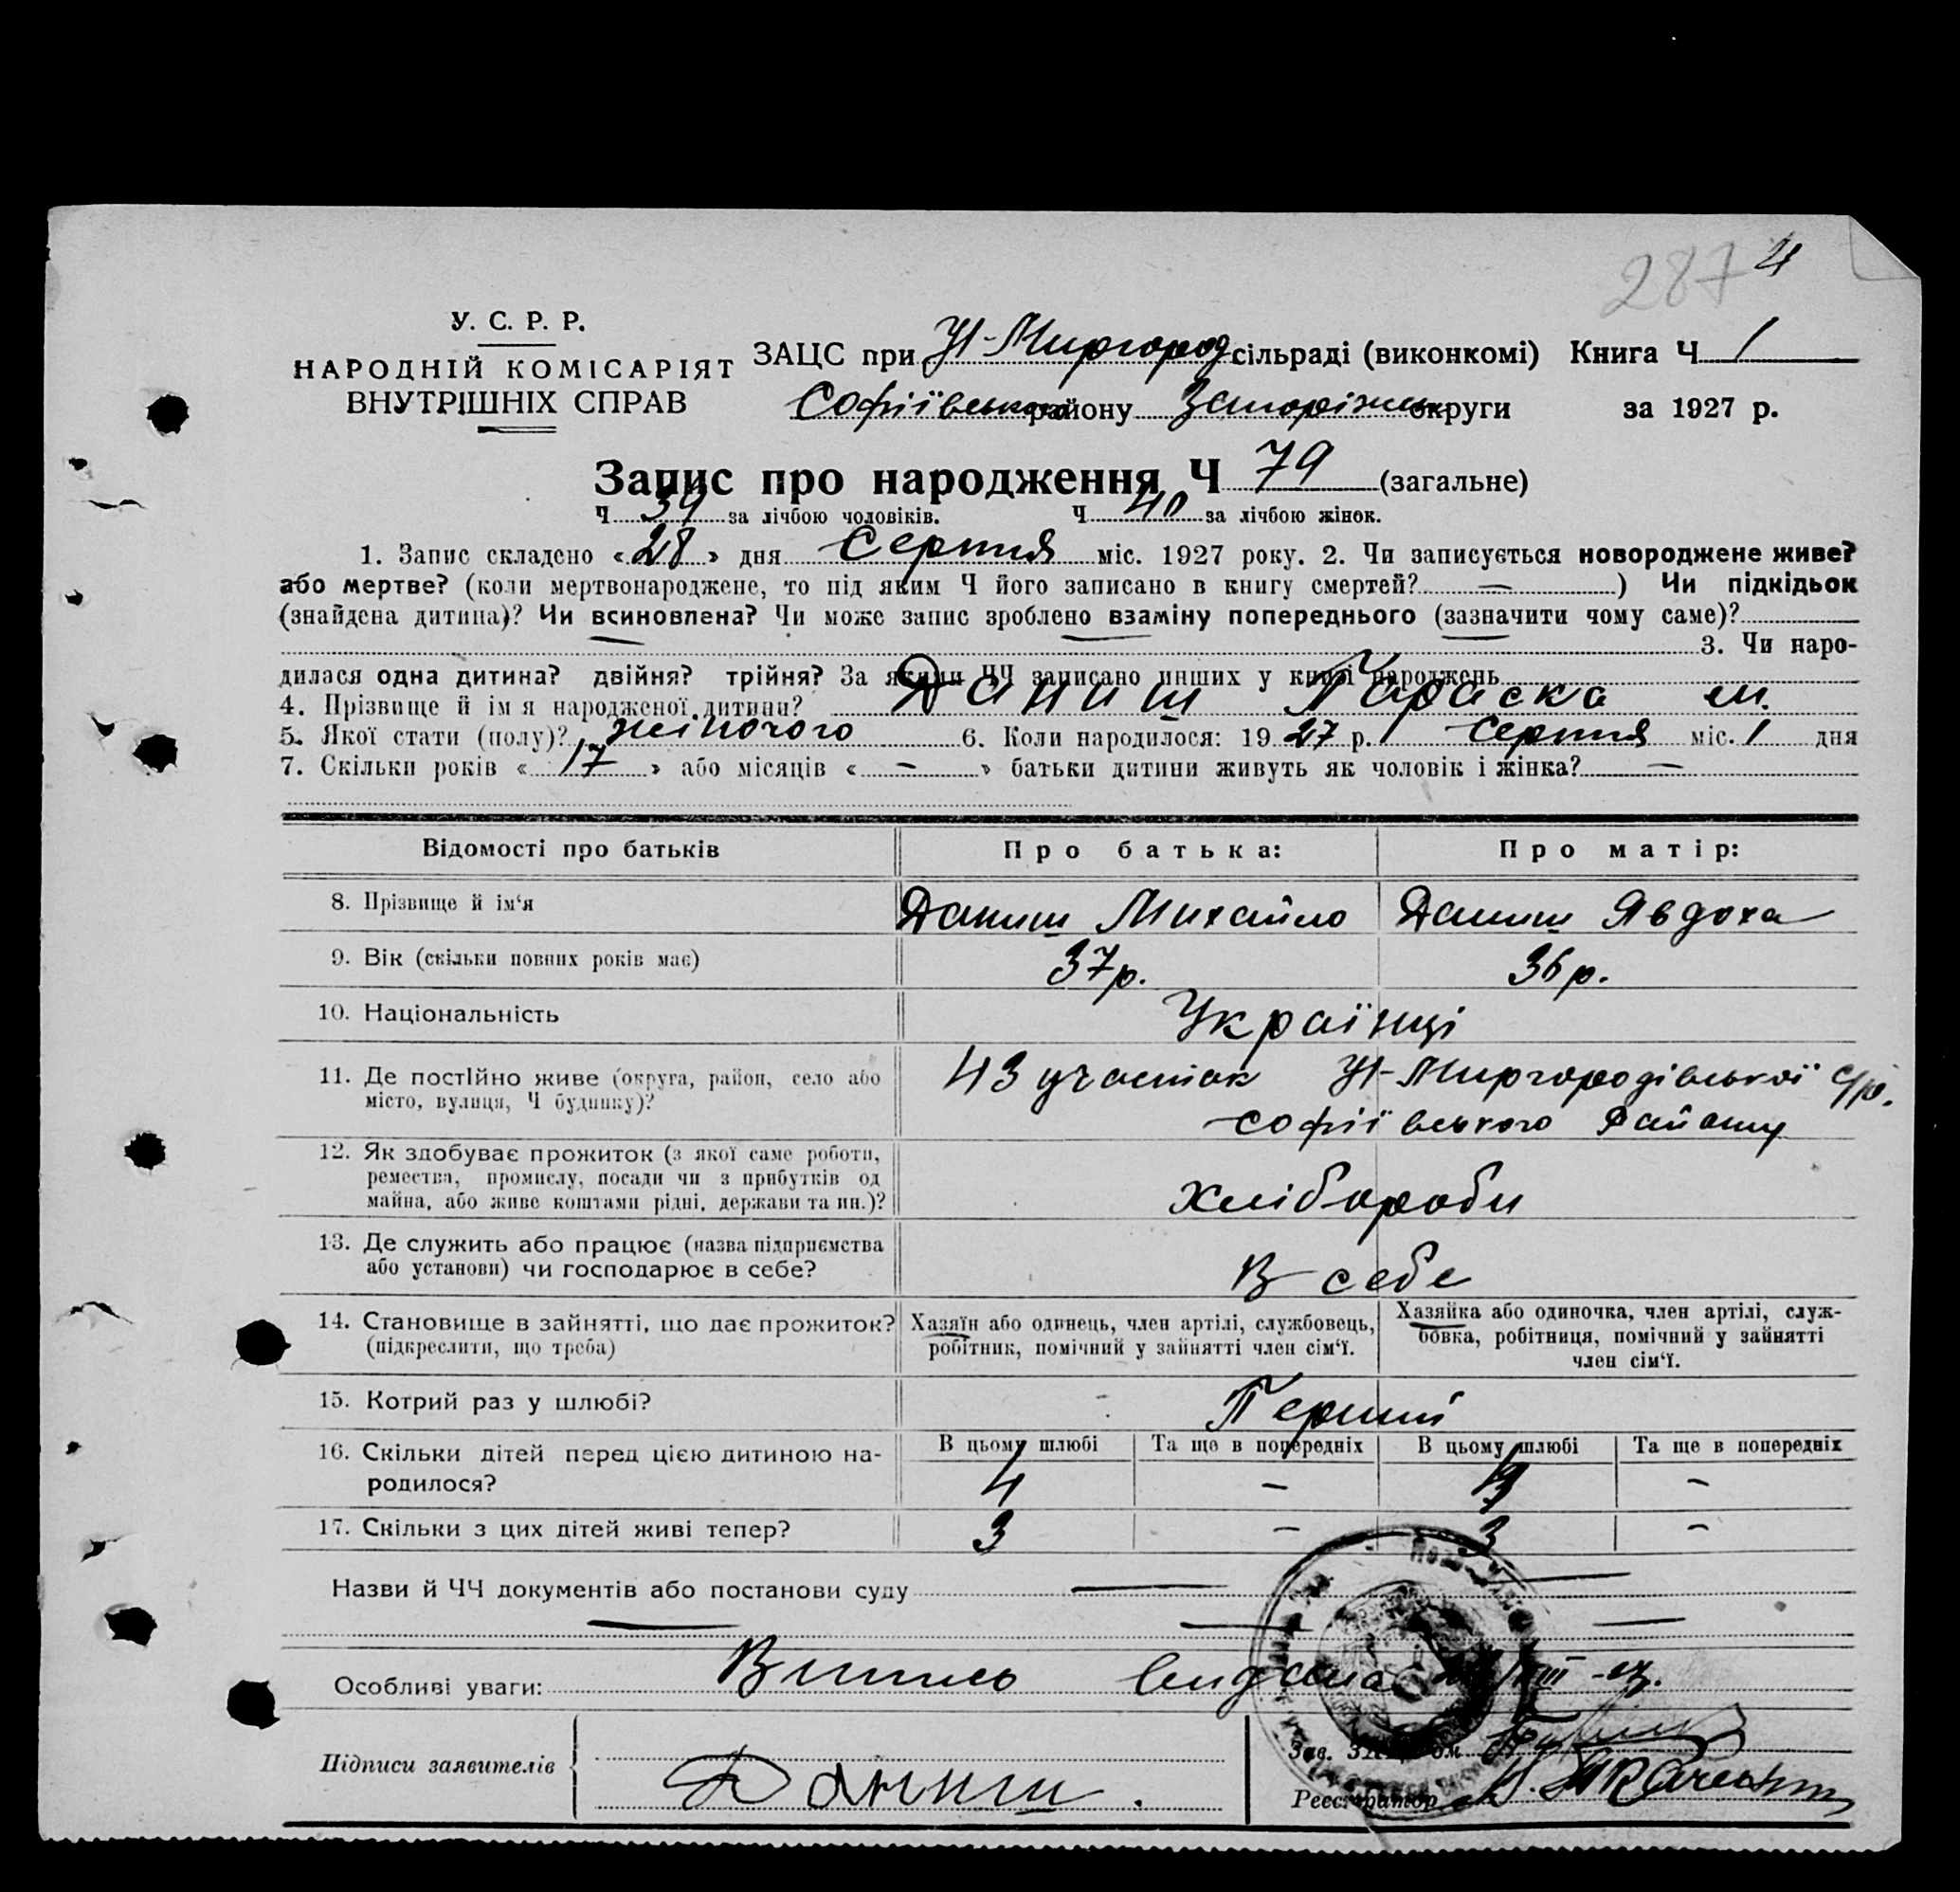 287 4
У. С. Р. Р.
НАРОДНІЙ КОМІСАРІЯТ
ВНУТРІШНІХ СПРАВ
ЗАЦС при Н-Миргород сільраді (виконкомі) Книга Ч 1
Софіївського району Запоріжськ округи за 1927 р.
Запис про народження Ч 79 (загальне)
Ч 39 за лічбою чоловіків. Ч 40 за лічбою жінок.
1. Запис складено «28» дня Серпня міс. 1927 року. 2. Чи записується новороджене живе?
або мертве? (коли мертвонароджене, то під яким Ч його записано в книгу смертей? — ) Чи підкідьок
(знайдена дитина)? Чи всиновлена? Чи може запис зроблено взаміну попереднього (зазначити чому саме)?
3. Чи наро-
дилася одна дитина? двійня? трійня? За якими ЧЧ записано инших у книзі народжень
4. Прізвище й ім я народженої дитини? Даниш Параска м.
5. Якої стати (полу)? жіночого 6. Коли народилося: 1927 р. Серпня міс. 1 дня
7. Скільки років «17» або місяців «-» батьки дитини живуть як чоловік і жінка? —
Відомості про батьків Про батька: Про матір:
8. Прізвище й ім‘я Даниш Михайло Даниш Явдоха
9. Вік (скільки повних років має) 37р. 36р.
10. Національність Українці
11. Де постійно живе (округа, район, село або 43 участок Н-Миргородівської с/р.
місто, вулиця, Ч будинку)? Софіївського Району
12. Як здобуває прожиток (з якої саме роботи,
ремества, промислу, посади чи з прибутків од
майна, або живе коштами рідні, держави та ин.)? Хлібороби
13. Де служить або працює (назва підприємства
або установи) чи господарює в себе? В себе
14. Становище в зайнятті, що дає прожиток? Хазяїн або одинець, член артілі, службовець, Хазяйка або одиночка, член артілі, служ-
(підкреслити, що треба) робітник, помічний у зайнятті член сім‘ї. бовка, робітниця, помічний у зайнятті
член сім‘ї.
15. Котрий раз у шлюбі? Перший
16. Скільки дітей перед цією дитиною на- В цьому шлюбі Та ще в попередніх В цьому шлюбі Та ще в попередніх
родилося? 4 - -
17. Скільки з цих дітей живі тепер? 3 - 3 -
Назви й ЧЧ документів або постанови суду
Особливі уваги: Випись видана
Підписи заявителів Даниш.
Зав. ЗАЦСом
Реєстратор